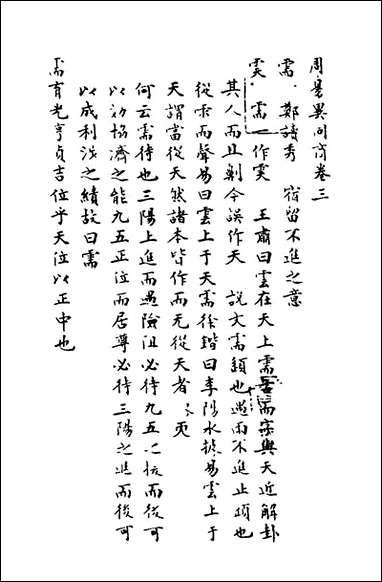 周易異同商卷三
需 鄭讀秀 宿留不進之意
需一作䨓 王肅曰雲在天上需 而 與天近解卦
其人而且劓今誤作天 說文需頷也遇雨不進止頷也
從雨而聲易曰雲上于天需徐鍇曰李陽冰據易雲上于
天謂當從天然諸本皆作而无從天者
何云需待也三陽上進而遇險阻必待九五之援而後可
以効協濟之能九五正位而居尊必待三陽之進而後可
以成利涉之績故曰需
需有孚光亨貞吉位乎天位以正中也